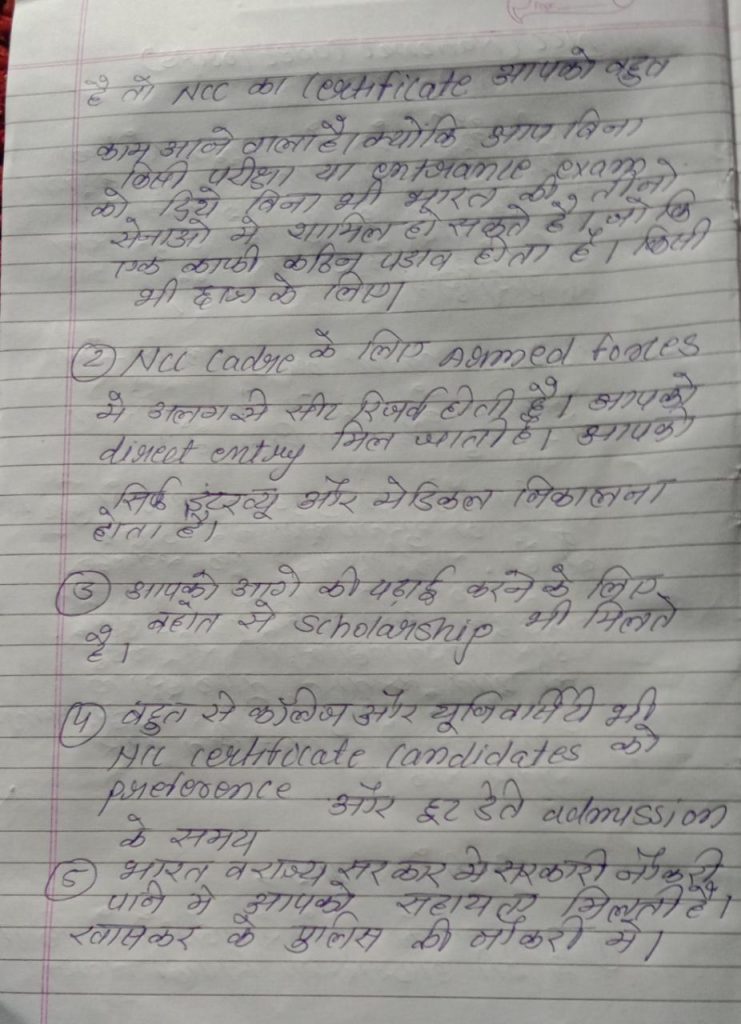 है तो NCC का certificate आपको बहुत
काम आने वाला है। क्योंकि आप बिना
किसी परीक्षा या entrance exam
को दिये बिना भी भारत की तीनो
सेनाओ मे शामिल हो सकते है। जो कि
एक काफी कठिन पडाव होता है। किसी
भी छात्र के लिए।
② NCC cadre के लिए Armed forces
मे अलग से सीट रिजर्व होती है। आपको
direct entry मिल जाती है। आपको
सिर्फ इंटरव्यू और मेडिकल निकालना
होता है।
③ आपको आगे की पढ़ाई करने के लिए
बहोत से scholarship भी मिलते
है।
④ बहुत से कॉलेज और यूनिवर्सिटी भी
NCC certificate candidates को
preference और छूट देते admission
के समय
⑤ भारत व राज्य सरकार मे सरकारी नौकरी
पाने मे आपको सहायता मिलती है।
खासकर के पुलिस की नौकरी मे।